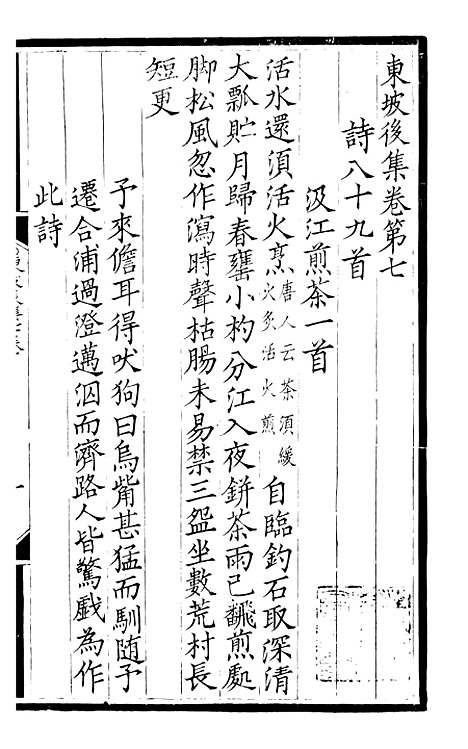 東坡後集卷第七
詩八十九首
汲江煎茶一首
活水還須活火烹唐人云茶須緩火炙活火煎自臨釣石取深清
大瓢貯月歸春甕小杓分江入夜鉼茶雨已翻煎處
脚松風忽作瀉時聲枯腸未易禁三盌坐數荒村長
短更
予來儋耳得吠狗曰烏觜甚猛而馴随予
遷合浦過澄邁泅而濟路人皆驚戯為作
此詩